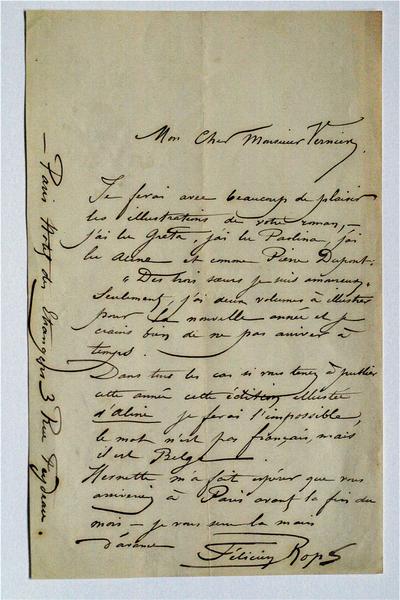 Mon Cher Monsieur Vernier,
Je ferai avec beaucoup de plaisir
les illustrations de votre roman, –
j'ai lu Greta, j'ai lu Paolina, j'ai
lu Aline et comme Pierre Dupont:
"Des trois sœurs je suis amoureux"
Seulement, j'ai deux volumes à illustrer
pour la nouvelle année et je
crains bien de ne pas arriver à
temps.
Dans tous les cas si vous tenez à publier
cette année cette édition illustrée
d'Aline je ferai l'impossible,
le mot n'est pas français, mais
il est Belge
m'a fait espérer que vous
arriverez à Paris avant la fin du
mois – je vous serre la main
d'avance
Félicien Rops
– Paris Hotel des Etrangers 3 Rue Feydeau.